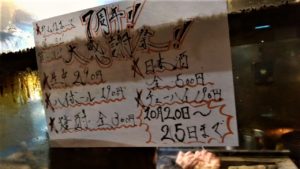 7周年!!
大感謝祭!!
生中290円
日本酒
全500円
ハイボール190円
チューハイ190円
全300円
10月20日～
25日まで